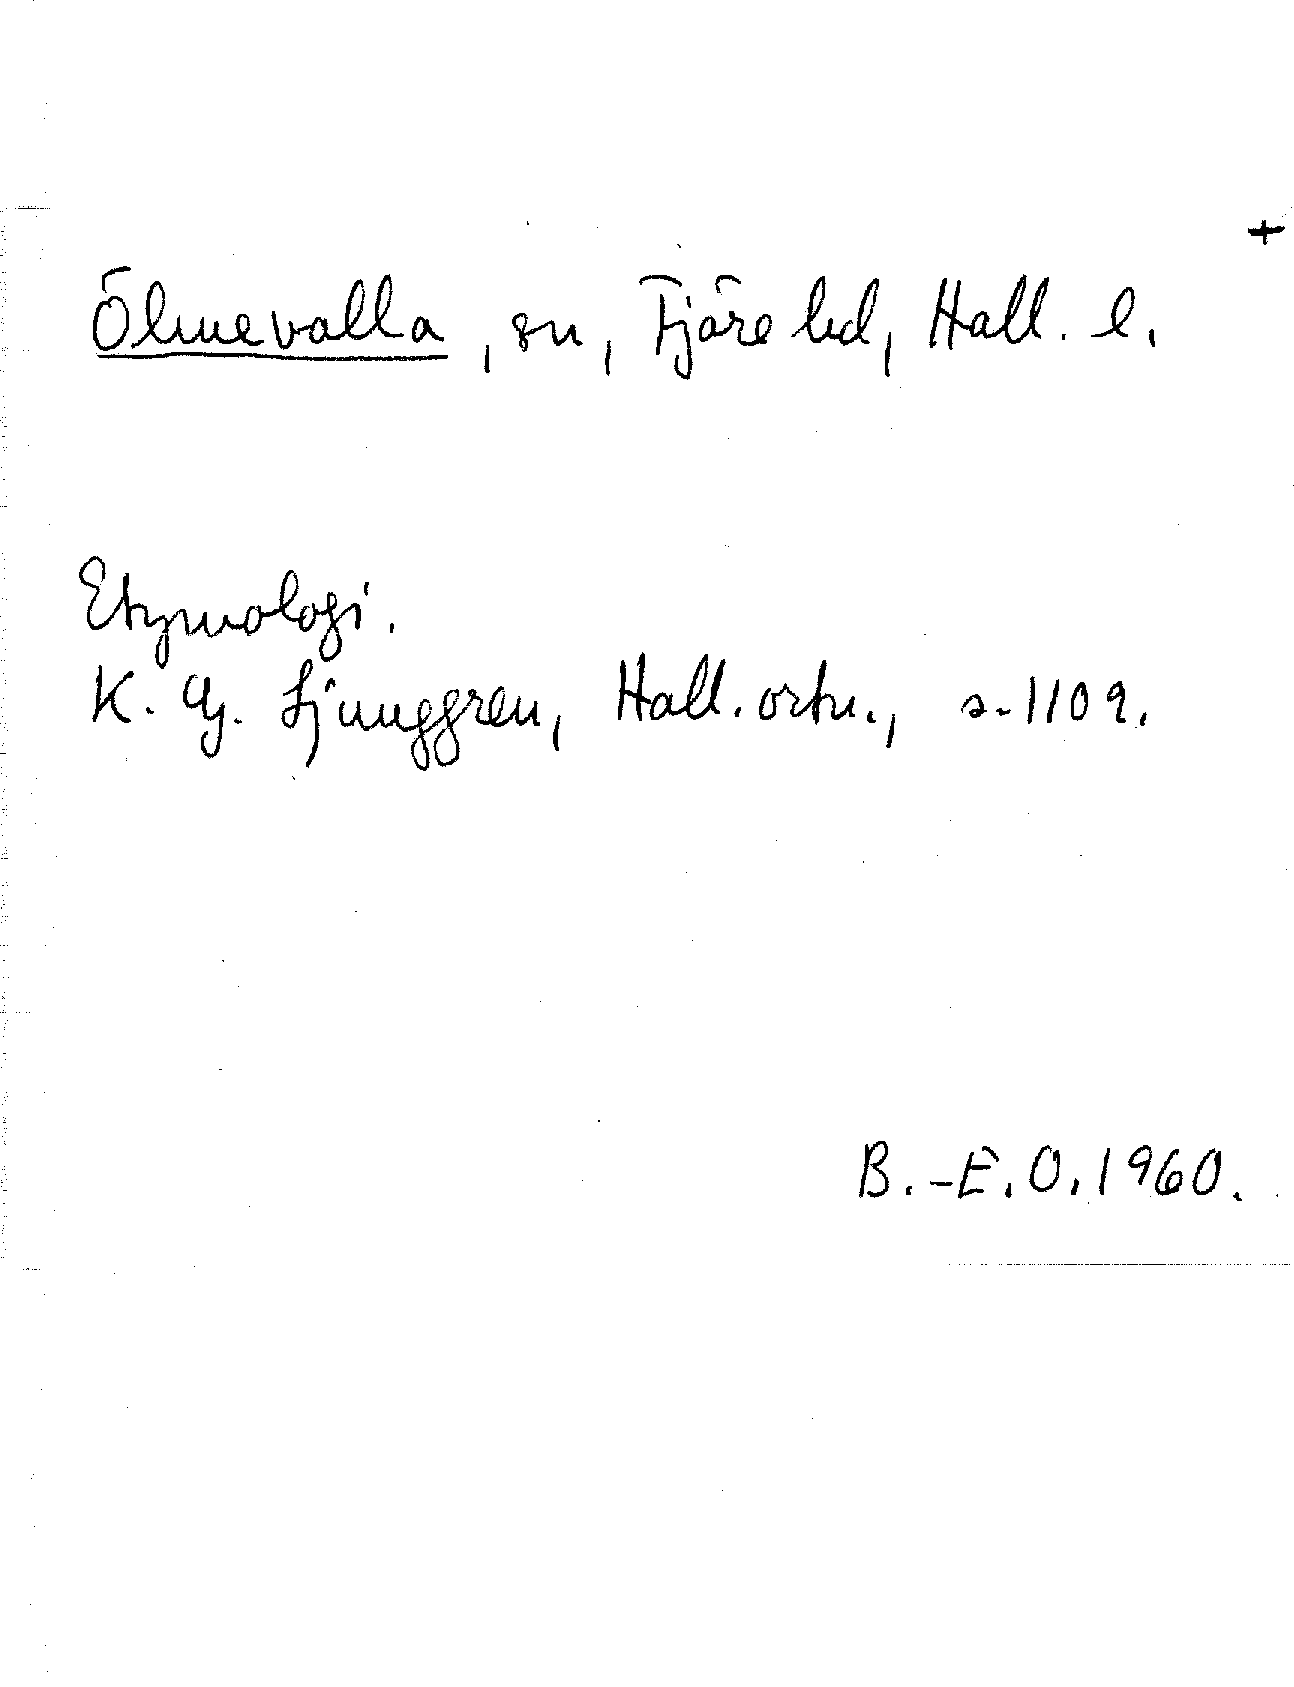 +
Ölmevalla, sn, Fjäre hd, Hall. l.
Etymologi.
K. G. Ljunggren, Hall. ortn., s. 1109.
B.-E.O. 1960.